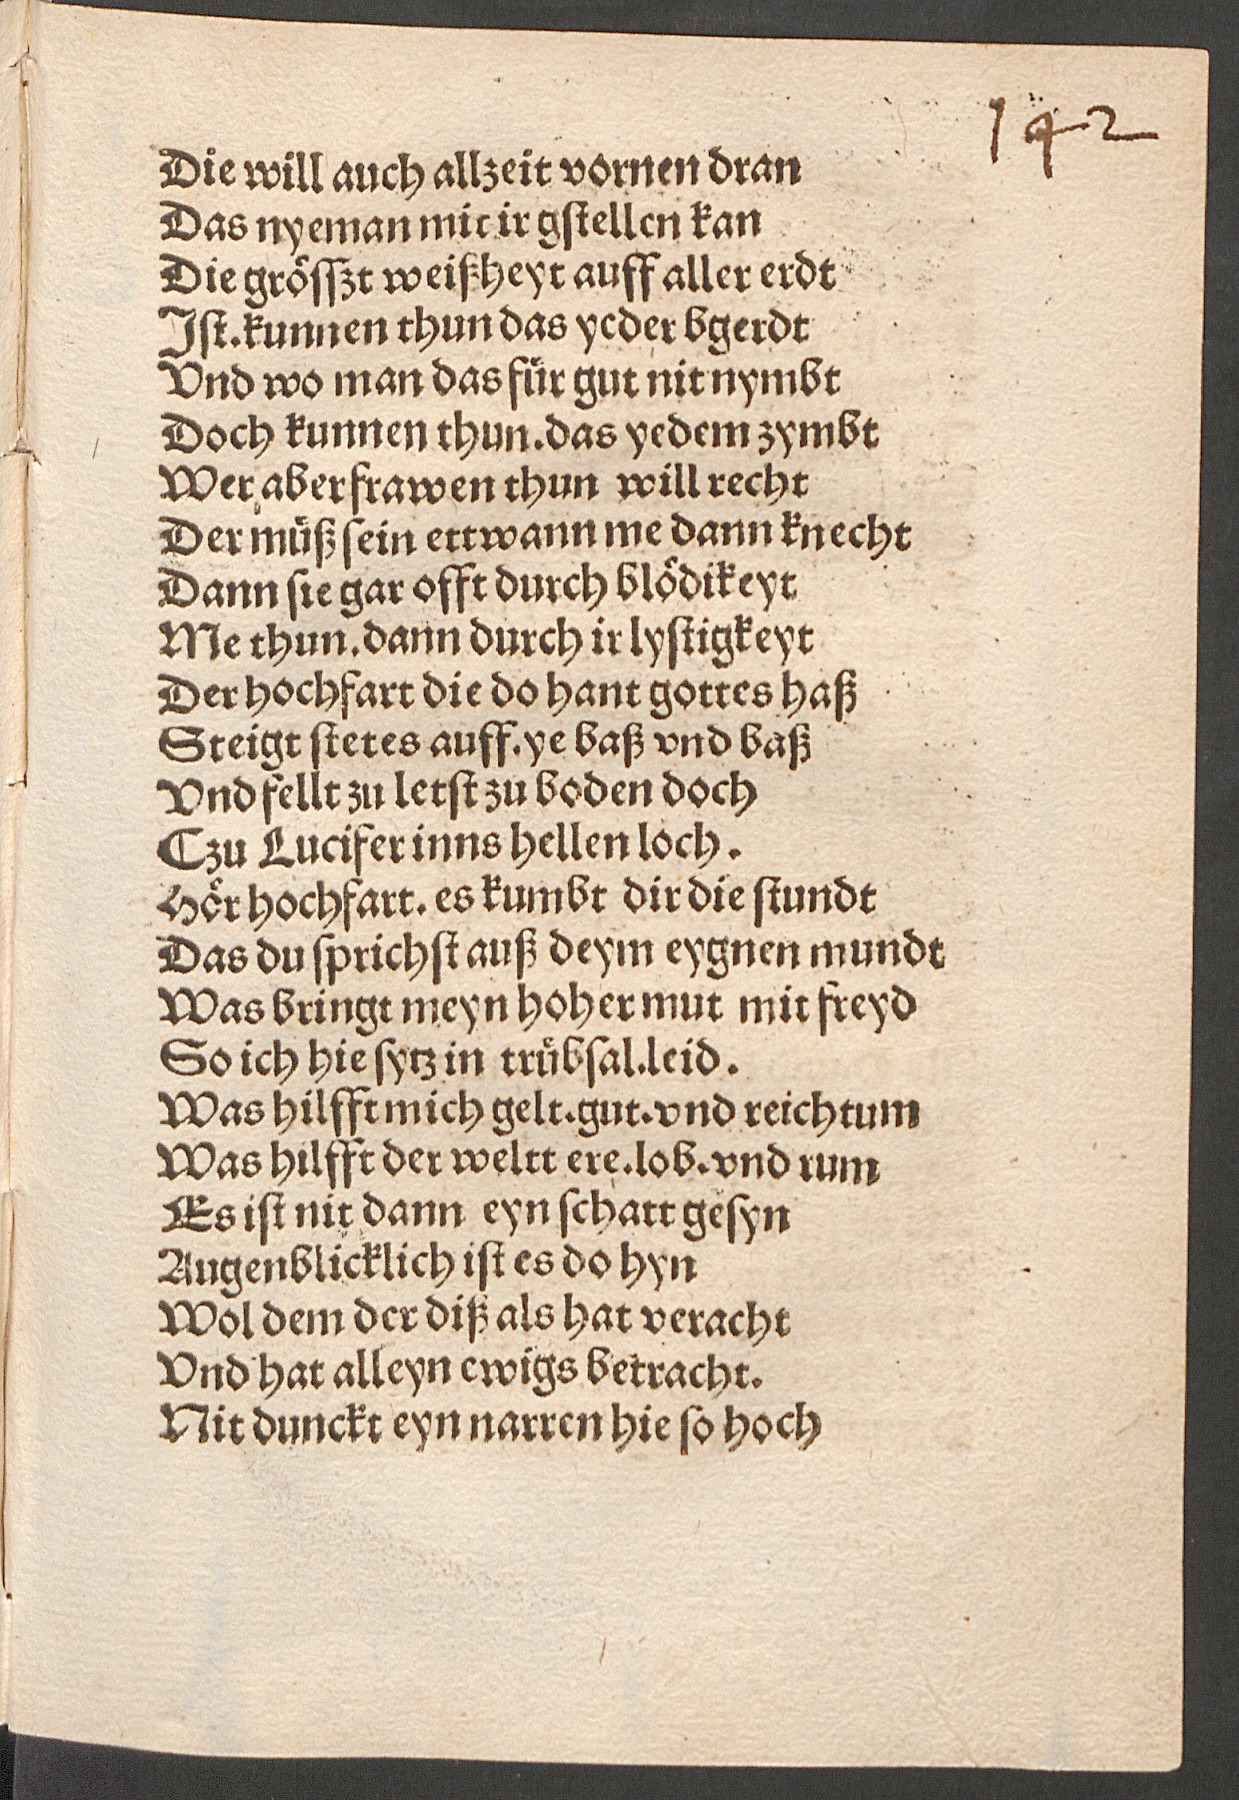 142
Die will auch allzeit vornen dran
Das nyeman mit ir gstellen kan
Die grösszt weißheyt auff aller erdt
Jst. kunnen thun das yeder bgerdt
Vnd wo man das für gut nit nymbt
Doch kunnen thun. das yedem zymbt
Wer aber frawen thun will recht
Der müß sein ettwann me dann knecht
Dann sie gar offt durch blödikeyt
Me thun. dann durch ir lystigkeyt
Der hochfart die do hant gottes haß
Steigt stetes auff. ye baß vnd baß
Vnd fellt zu letst zu boden doch
Czu Lucifer inns hellen loch.
Hör hochfart. es kumbt dir die stundt
Das du sprichst auß deym eygnen mundt
Was bringt meyn hoher mut mit freyd
So ich hie sytz in trübsal. leid.
Was hilfft mich gelt. gut. vnd reichtum
Was hilfft der weltt ere. lob. vnd rum
Es ist nit dann eyn schatt gesyn
Augenblicklich ist es do hyn
Wol dem der diß als hat veracht
Vnd hat alleyn ewigs betracht.
Nit dunckt eyn narren hie so hoch